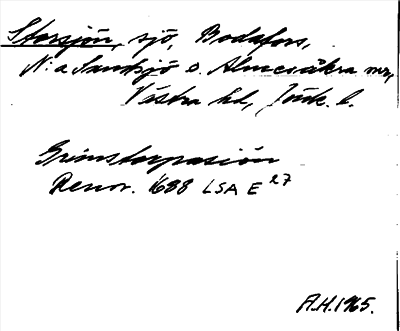 Storsjön, sjö, Bodafors,
N:a Sandsjö o. Almesåkra snr,
Västra hd, Jönk. l.
Grimstorpasiön
Renov. 1688 LSA E 27
A.H. 1965.